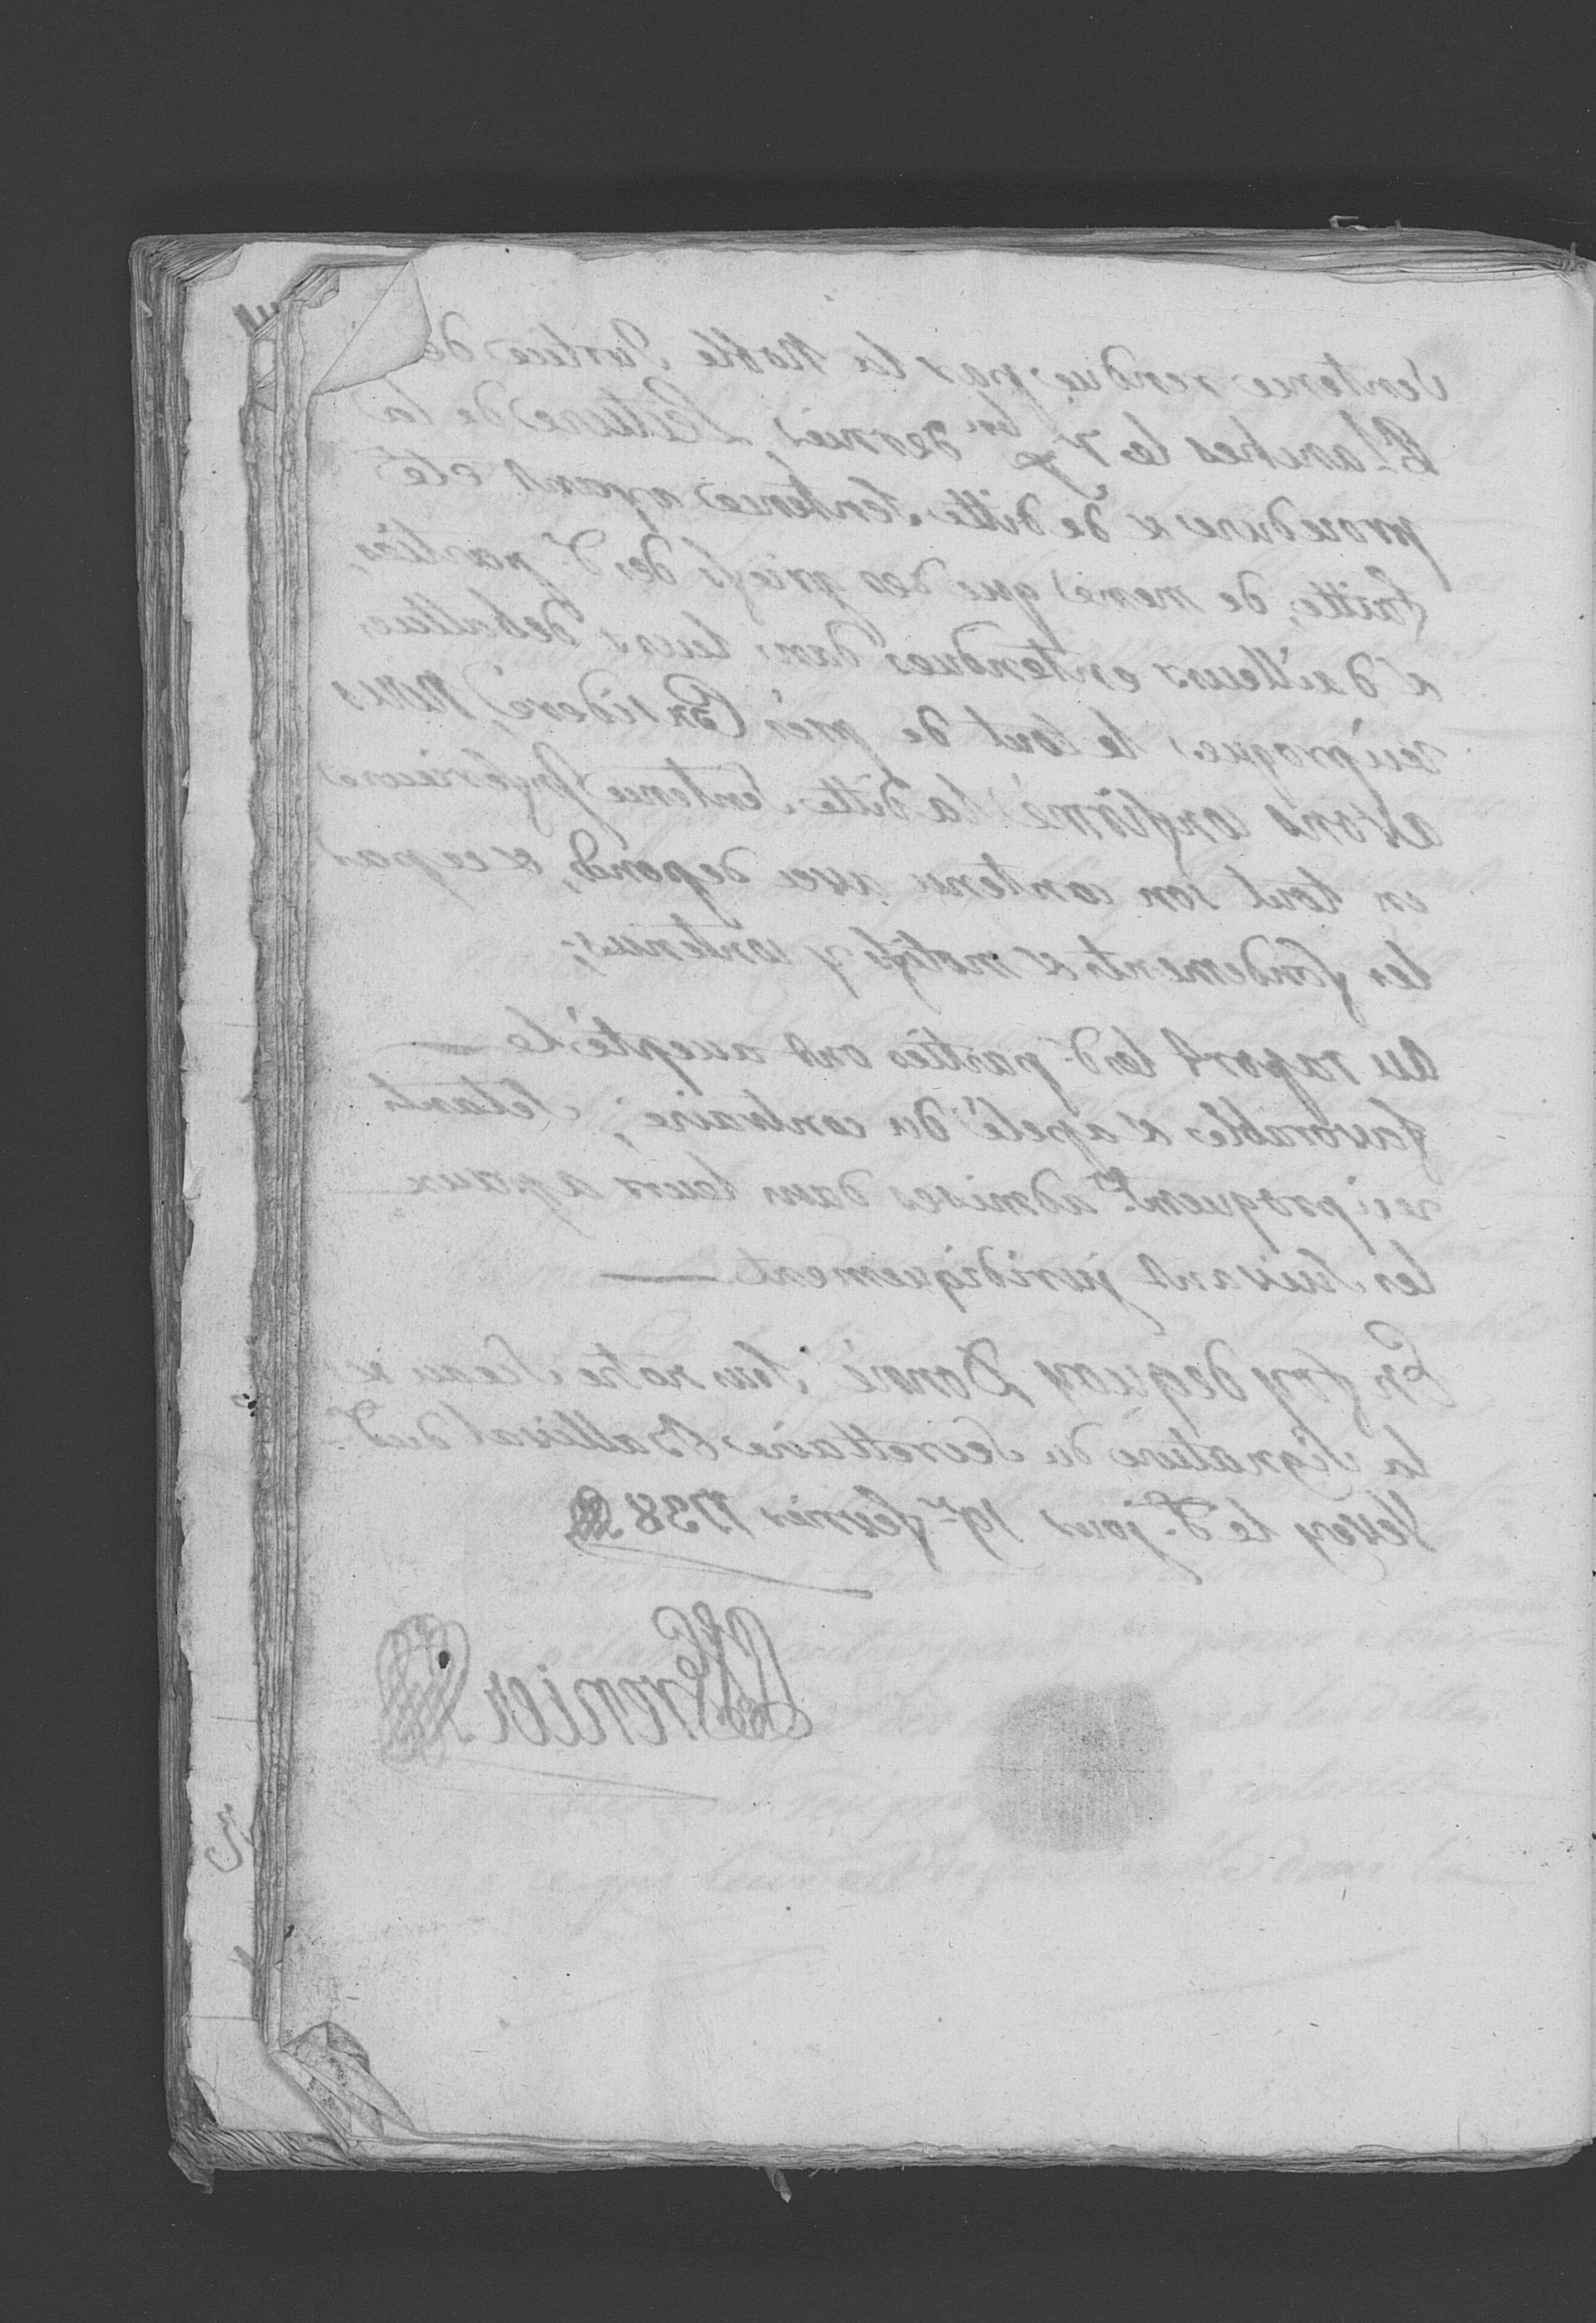 Sentence rendue par la Noble Justice de
Blanches le 7.e dernier, Lecture de la
procedure & de ditte Sentence ayant eté
faitte, de meme que des griefs des d.s parties,
& d'ailleurs entendues dans leurs debattues
reciproques le tout de prés Consideré, Nous
avons confirmé la ditte Sentence Inferieure
en tout son contenu avec depends, & ce par
les fondements & motifs y contenus;
Au raport lesd. parties ont accepté le
favorable & apelé du contraire; Setants
reciproquem.t admises dans leurs apaux
les suivant juridiquement
En foy dequoy Donné sous notre Sceau &
la Signature du Secrettaire Ballival dud.
Vevey le d. jour 19.e fevrier 1738